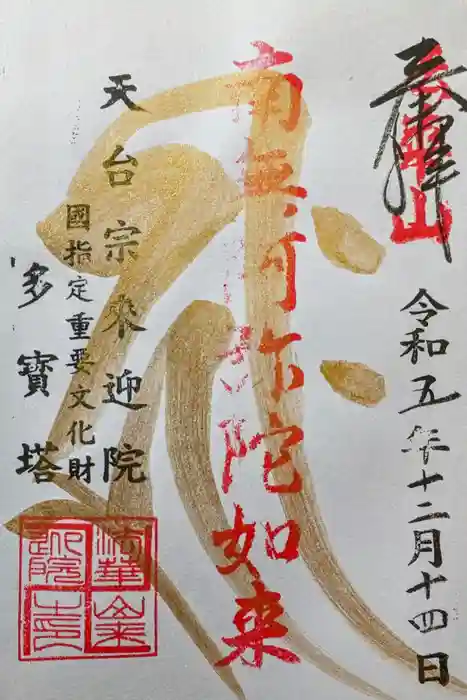 奉拝
令和五年十二月十四日
南無阿弥陀如来
天台宗來迎院
國指定重要文化財
多寶塔